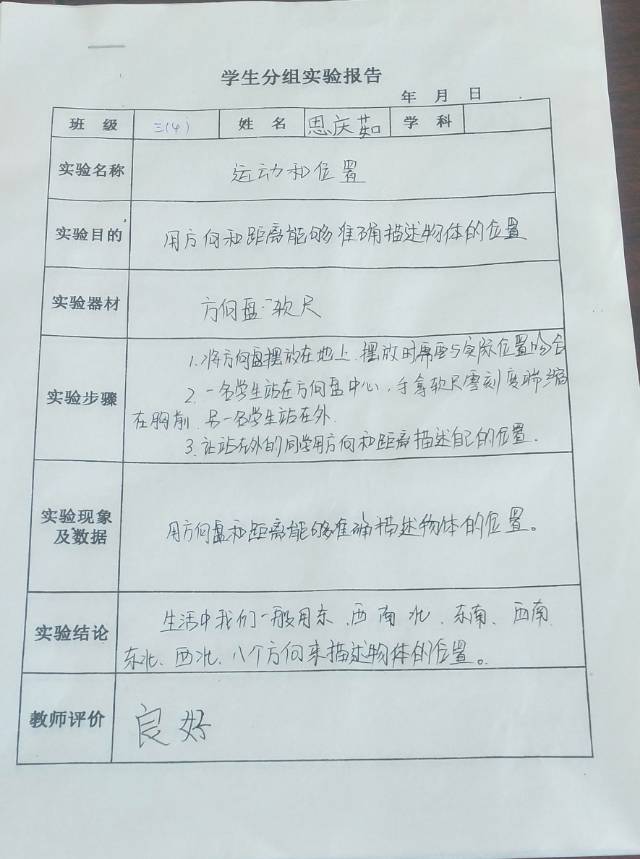 学生分组实验报告
年 月 日
班 级 三(4) 姓 名 思庆茹 学 科
实验名称 运动和位置
实验目的 用方向和距离能够准确描述物体的位置
实验器材 方向盘、软尺
1.将方向盘摆放在地上.摆放时需要与实际位置吻合
实验步骤 2.一名学生站在方向盘中心,手拿软尺零刻度端
在胸前.另一名学生站在外.
3.让站在外的同学用方向和距离描述自己的位置.
实验现象
及数据 用方向盘和距离能够准确描述物体的位置。
实验结论 生活中我们一般用东、西 南 北、东南、西南
东北、西北、八个方向来描述物体的位置。
教师评价 良好